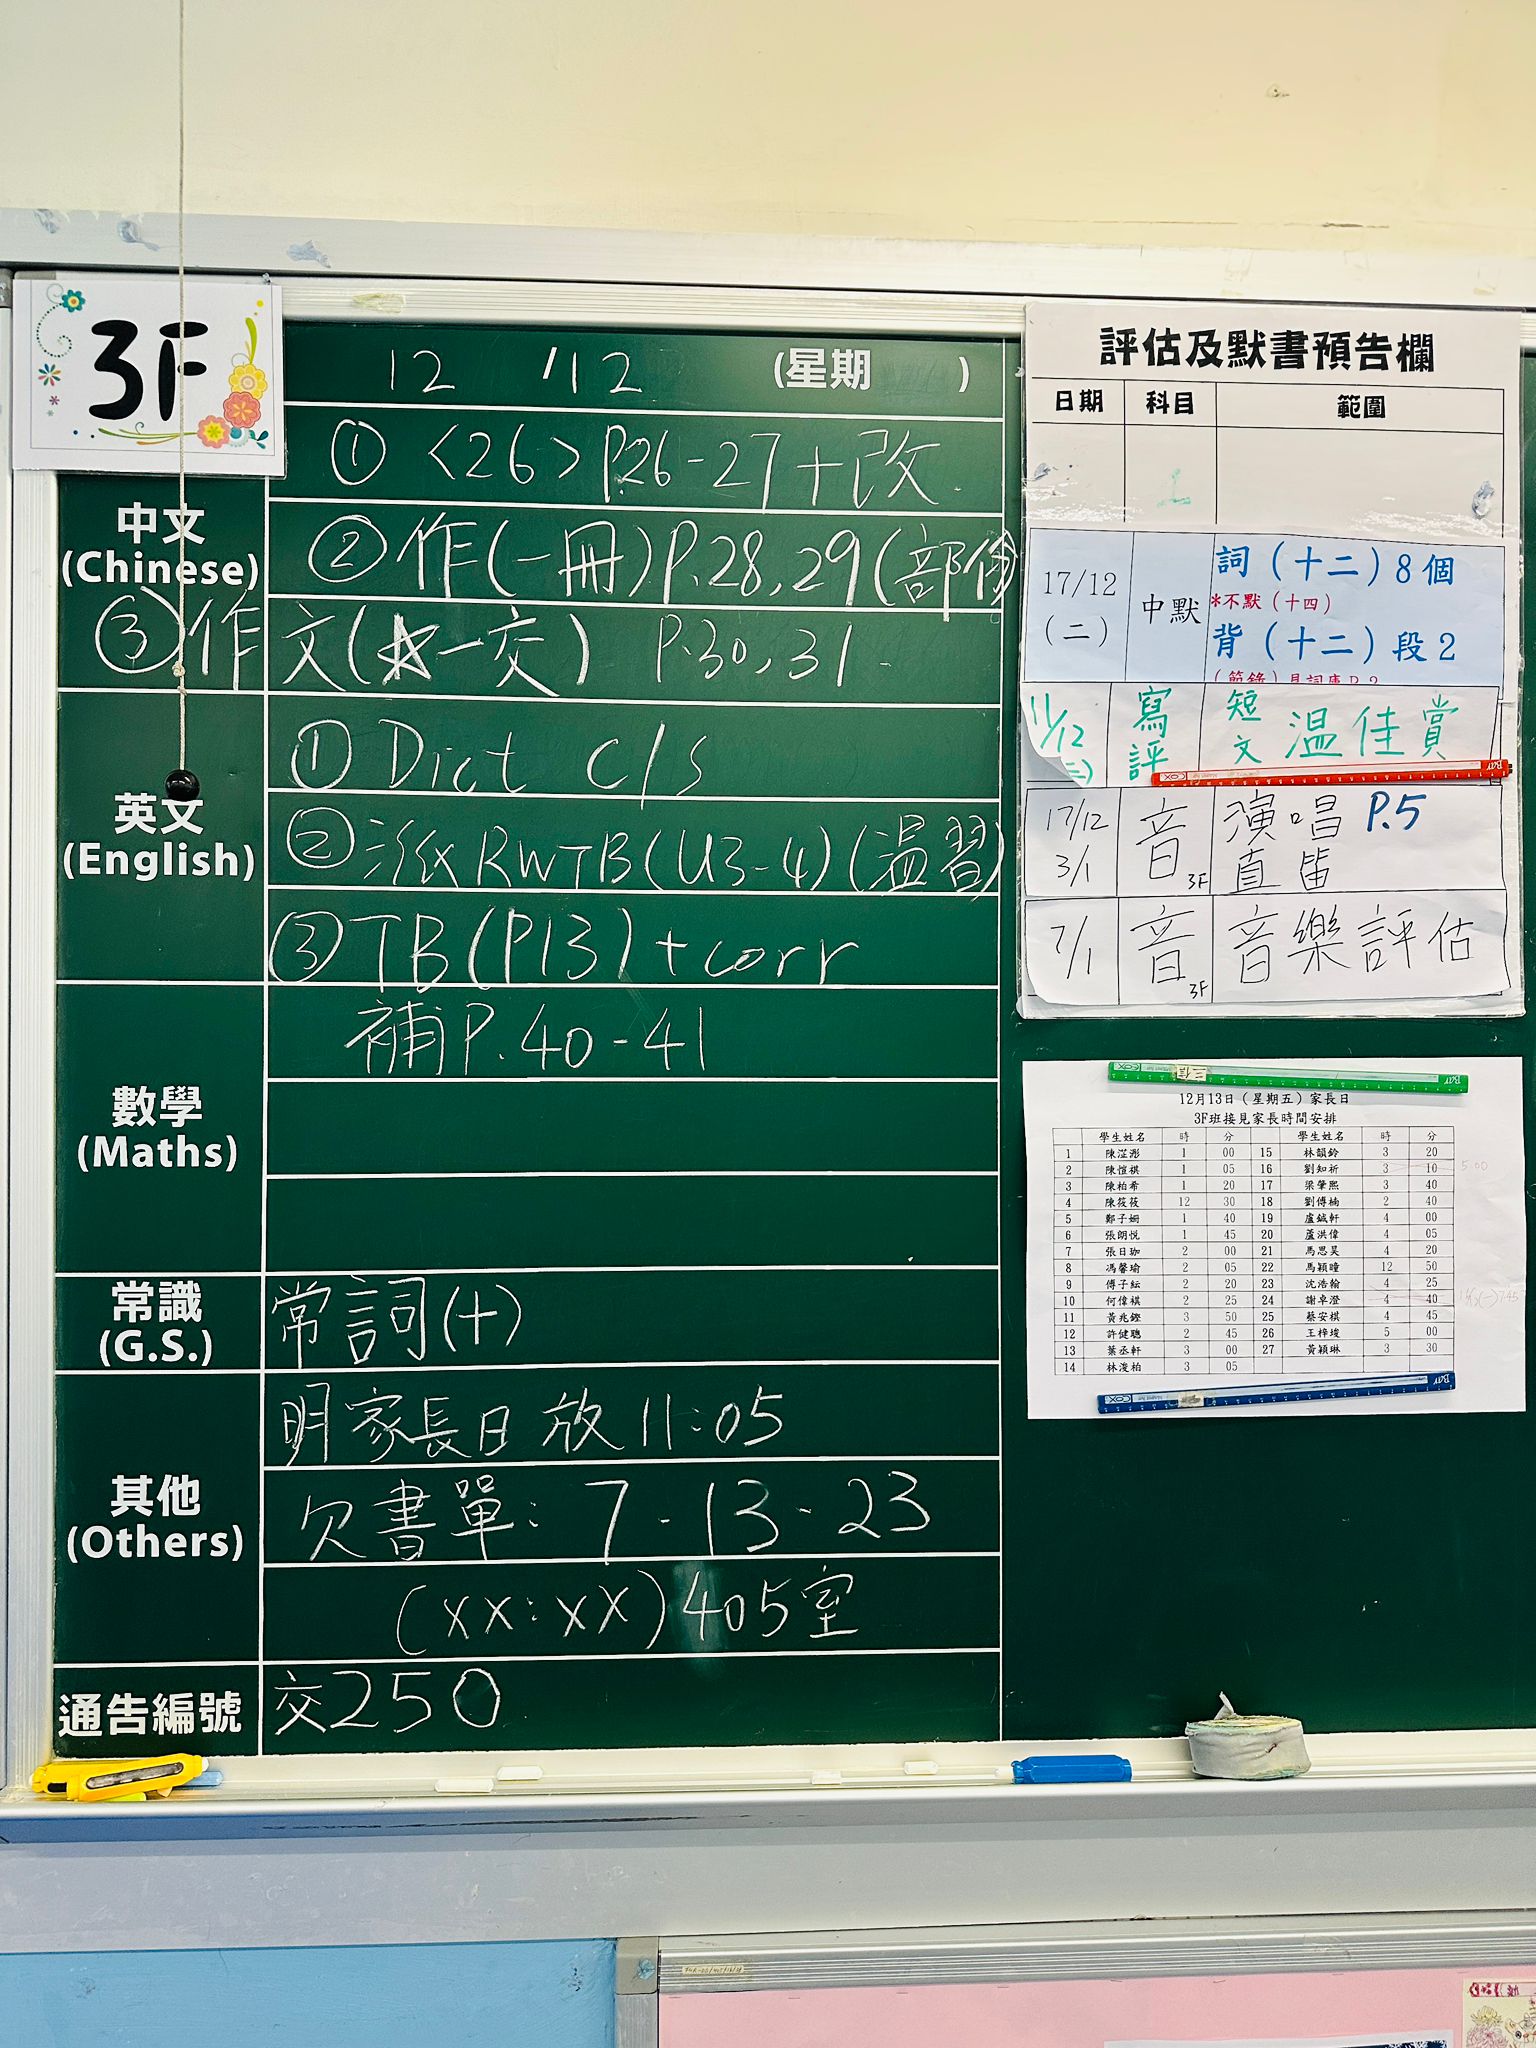 3F
12 / 12 (星期 )
中文
(Chinese)
① <26> P.26-27 + 改
② 作(一冊) P.28, 29 (部份)
③ 作文(一交) P.30, 31
英文
(English)
① Dict c/s
② 派 RWTB (U3-4) (温習)
③ TB (P13) + corr
數學
(Maths)
補 P. 40-41
常識
(G.S.)
常詞(十)
其他
(Others)
明家長日 放 11:05
欠書單: 7 . 13 . 23
(XX:XX) 405室
通告編號
交250
評估及默書預告欄
日期 科目 範圍
17/12 (二) 中默 詞（十二）8個
*不默（十四）
背（十二）段2
(節錄) 見詞庫P.2
11/12 寫評 短文 温佳賞
17/12 3/1 音 3F 演唱 P.5 直笛
7/1 音 3F 音樂評估
12月13日（星期五）家長日
3F班接見家長時間安排
學生姓名 時 分 學生姓名 時 分
1 1 00 15 林韻鈴 3 20
2 陳愷祺 1 05 16 劉知析 3 10 5:00
3 陳柏希 1 20 17 梁肇熙 3 40
4 陳筱筱 12 30 18 劉傅楠 2 40
5 鄭子姍 1 40 19 盧鋮軒 4 00
6 張朗悅 1 45 20 蘆洪偉 4 05
7 張日珈 2 00 21 馬思昊 4 20
8 馮馨瑜 2 05 22 馬穎瞳 12 50
9 傅子紜 2 20 23 沈浩翰 4 25
10 何偉祺 2 25 24 謝卓澄 4 40
11 黃兆鏗 3 50 25 蔡安祺 4 45
12 許健聰 2 45 26 王梓埈 5 00
13 葉丞軒 3 00 27 黃穎琳 3 30
14 林浚柏 3 05